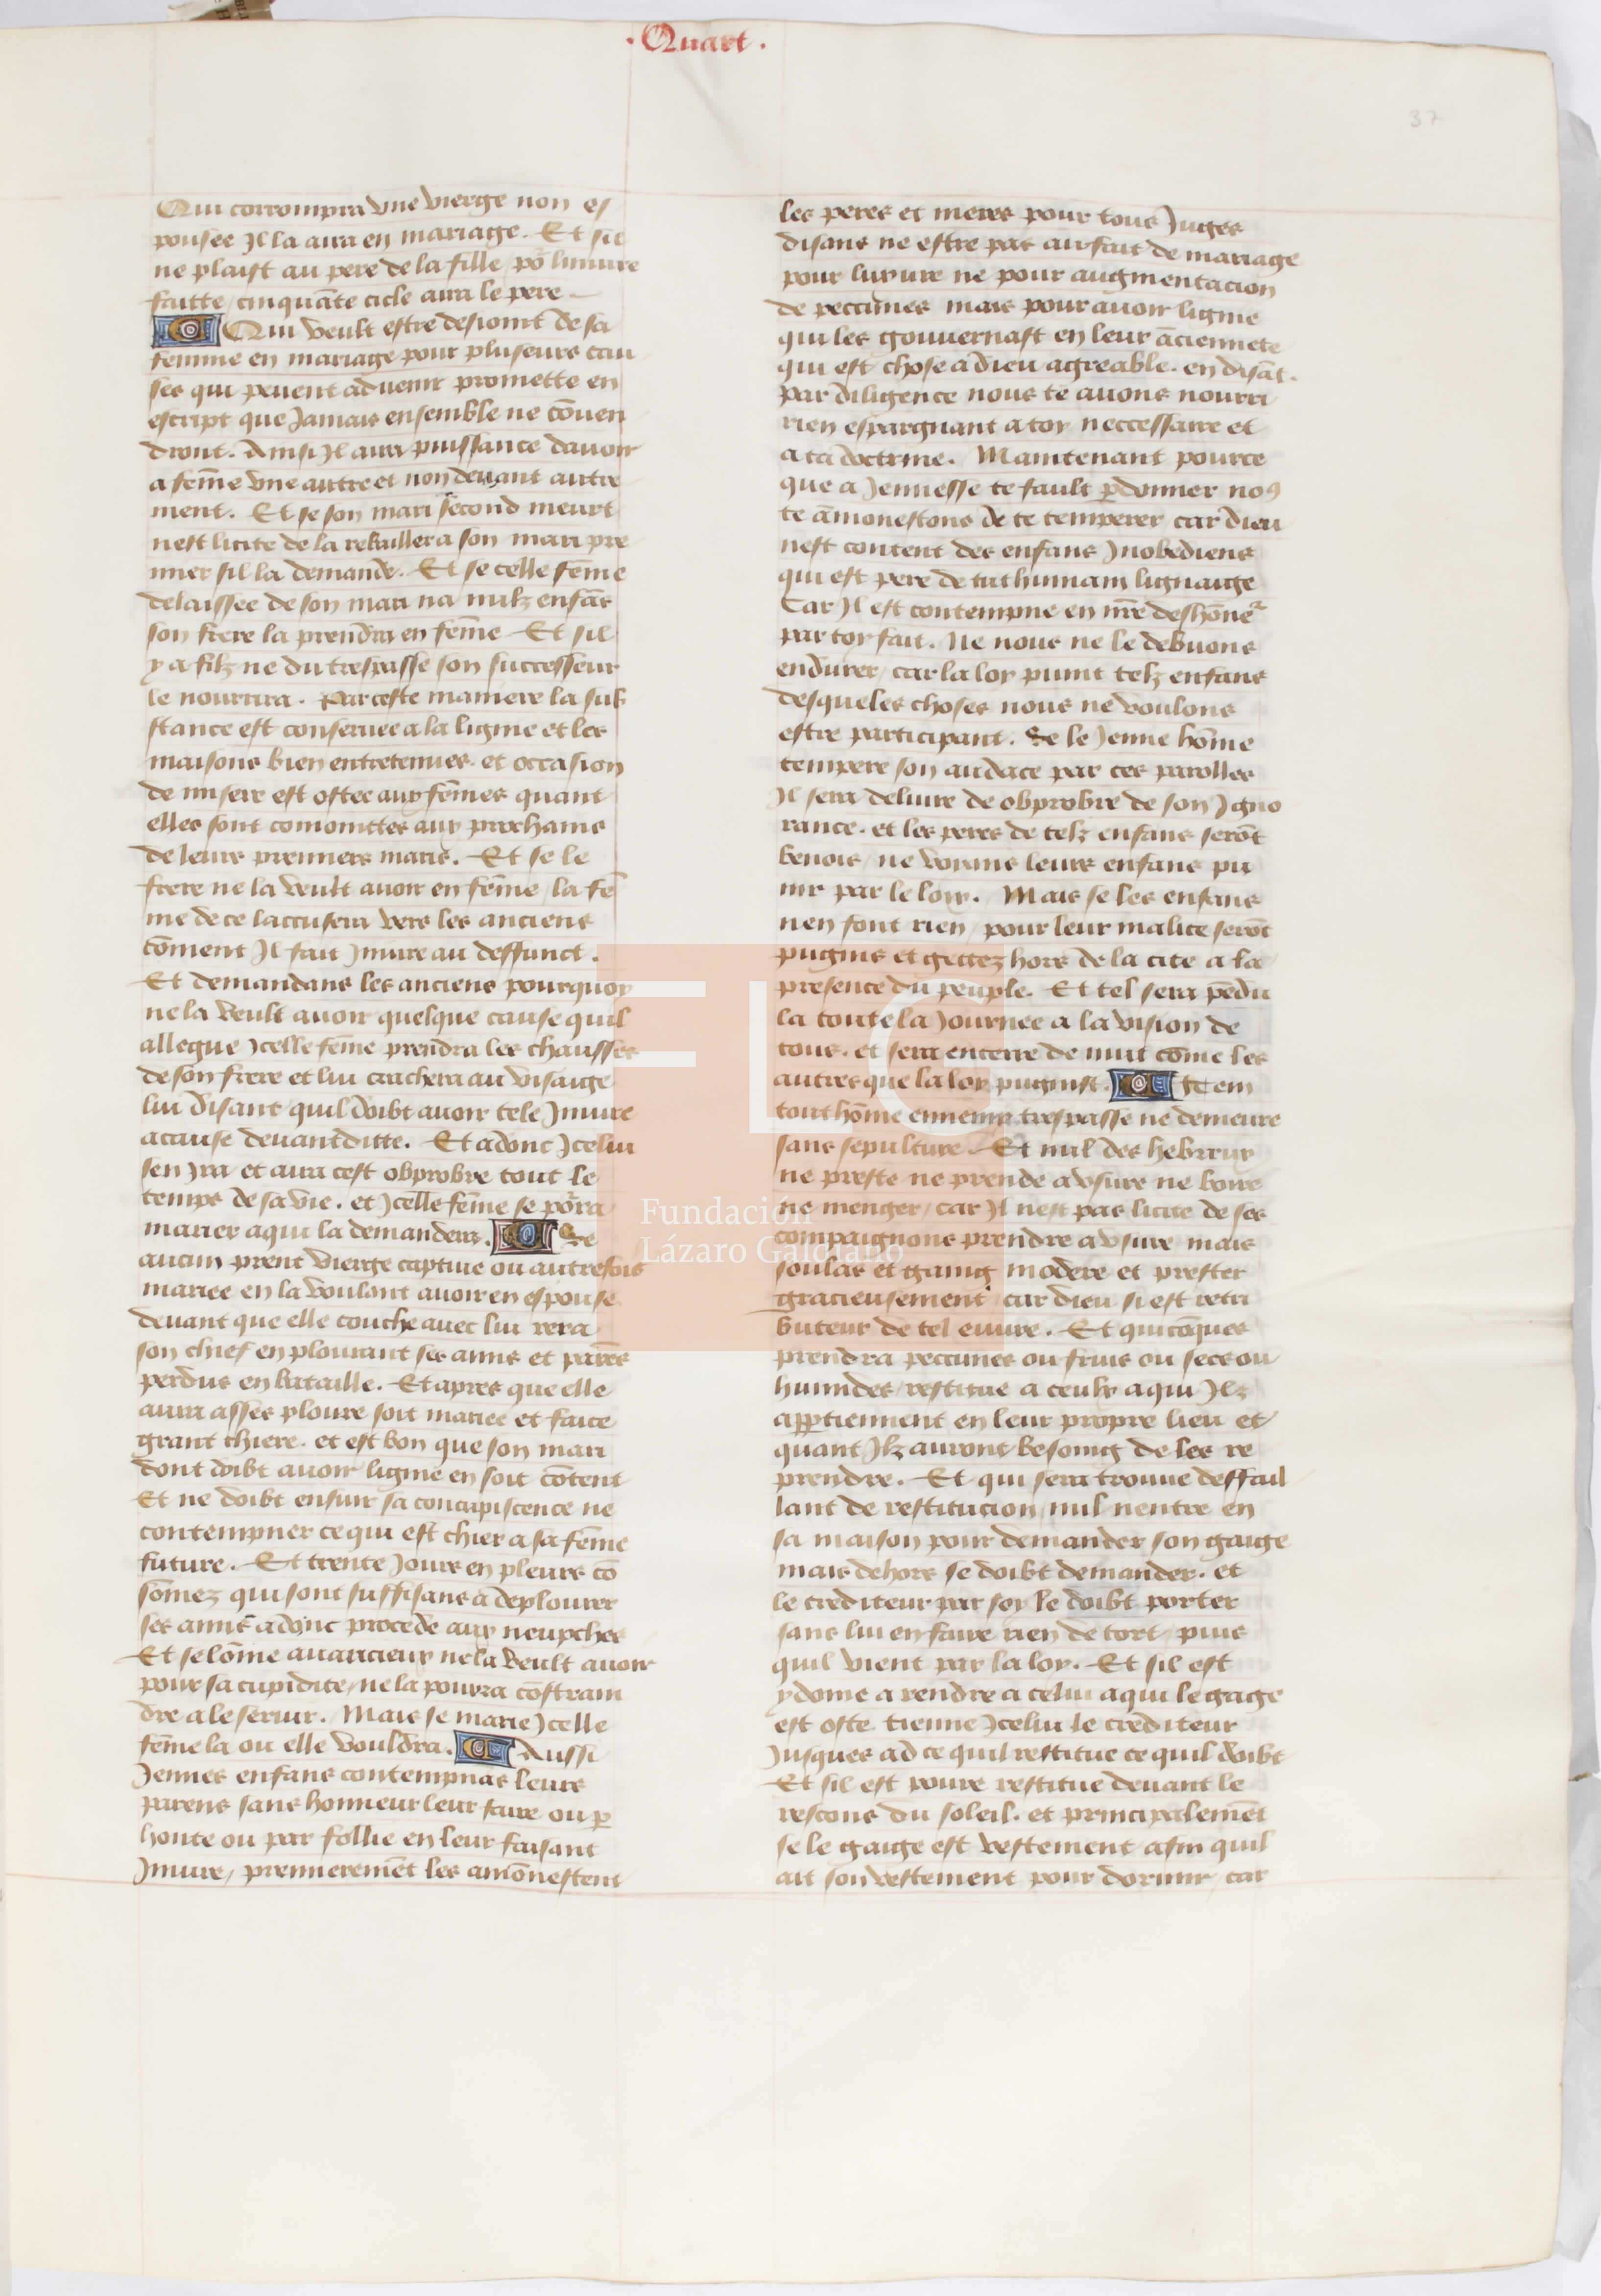 . Quart .
37
Qui corrompra vne vierge non es
pousee Jl la aura en mariage . Et sil
ne plaist au pere de la fille / po² liniure
faitte / cinquāte cicle aura le pere
Qui veult estre desioint de sa
femme en mariage pour pluseurs cau
ses qui peuent aduenir promette en
escript que Jamais ensemble ne cōuen
dront . Ainsi Jl aura puissance dauoir
a fem̄e vne autre et non deuant autre
ment . Et se son mari second meurt
nest licite de la rebailler a son mari pre
mier sil la demande . Et se celle fēme
delaissee de son mari na nulz enfās
son frere la prendra en fēme Et sil
y a filz ne du trespasse son successeur
le nourrira . Par ceste maniere la sub
stance est conseruee a la ligine et les
maisons bien entretenues . et occasion
de misere est ostee aux fēmes quant
elles sont comointtes aux prochains
de leurs premiers maris . Et se le
frere ne la veult auoir en fēme / la fē
me de ce laccusera vers les anciens
cōment Jl fait Jniure au deffunct .
Et demandans les anciens pourquoy
ne la veult auoir quelque cause quil
allegue Jcelle fēme prendra les chausses
de son frere et lui crachera au visaige
lui disant quil doibt auoir tele Jniure
a cause deuantditte . Et adonc Jcelui
sen Jra et aura cest obprobre tout le
temps de sa vie . et Jcelle fēme se por̄a
marier a qui la demandera . Se
aucun prent vierge captiue ou autresfois
mariee en la voulant auoir en espouse
deuant que elle couche auec lui rera
son chief en plourant ses amis et parēs
perdus en bataille . Et apres que elle
aura asses ploure soit mariee et face
grant chiere . et est bon que son mari
dont doibt auoir ligine en soit cōtent
Et ne doibt ensuir sa concupiscence ne
contempner ce qui est chier a sa fēme
future . Et trente Jours en pleurs cō
sōmez qui sont suffisans a deplourer
ses amis adonc procede aux neupches
Et se lōme auaricieux ne la veult auoir
pour sa cupidite / ne la pourra cōstrain
dre a le seruir . Mais se marie Jcelle
fēme la ou elle vouldra . Aussi
Jennes enfans contempnās leurs
parens sans honneur leur faire ou p̄
honte ou par follie en leur faisant
Jniure / premieremēt les amōnestent
les peres et meres pour tous Juges
disans ne estre pas au fait de mariage
pour luxure ne pour augmentacion
de peccunes mais pour auoir ligine
qui les gouuernast en leur ācienncte
qui est chose a dieu agreable . en disāt .
par diligence nous te auons nourri
rien espargnant a toy neccessaire et
a ta doctrine . Maintenant pource
que a Jennesse te fault p̄donner no9
te āmonestons de te temperer car dieu
nest content des enfans Jnobediens
qui est pere de tut humain lignaige
Car Jl est contempne en nr̄e deshōne²
par toy fait . Ne nous ne le debuons
endurer / car la loy punit telz enfans
desqueles choses nous ne voulons
estre participant . Se le Jenne hōme
tempere son audace par ces parolles
Jl sera deliure de obprobre de son Jgno
rance . et les peres de telz enfans serōt
benois / ne voyans leurs enfans pu
nir par le loy . Mais se les enfans
nen font rien / pour leur malice serōt
pugnis et gettez hors de la cite a la
presence du peuple . Et tel sera pēdu
la toute la Journee a la vision de
tous . et sera enterre de nuit cōme les
autres que la loy pugnist . Jtem
tout hōme ennemy trespasse ne demeure
sans sepulture . Et nul des hebreux
ne preste ne prende a vsure ne boire
ne menger / car Jl nest pas licite de ses
compaignons prendre a vsure mais
soulas et gaing modere et prester
gracieusement car dieu si est retri
buteur de tel euure . Et quicōques
prendra peccunes ou fruis ou secs ou
humides / restitue a ceulx a qui Jlz
app̄tiennent en leur propre lieu et
quant Jlz auront besoing de les re
prendre . Et qui sera trouue deffail
lant de restitucion / nul nentre en
sa maison pour demander son gaige
mais dehors se doibt demander . et
le crediteur par soy le doibt porter
sans lui en faire rien de tort / puis
quil vient par la loy . Et sil est
ydoine a rendre a celui a qui le gage
est oste tienne Jcelui le crediteur
Jusques ad ce quil restitue ce quil doibt
Et sil est poure restitue deuant le
rescons du soleil . et principalemēt
se le gaige est vestement afin quil
ait son vestement pour dormir / car
FLG
Fundación
Lázaro Galdiano